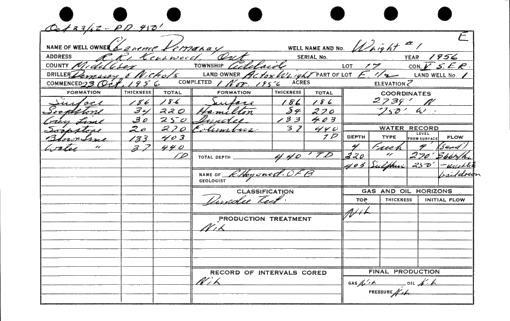 Oct 23/52 - PD 450'
E
NAME OF WELL OWNER Clarence Demaray WELL NAME AND NO. Wright #1
ADDRESS R.R. Kerwood Ont SERIAL No. YEAR 1956
COUNTY Middlesex TOWNSHIP Adelaide LOT 17 CON. V S.E.R.
DRILLER Demaray & Nichols LAND OWNER PART OF LOT E. 1/2 LAND WELL No. 1
COMMENCED 23 Oct 1956 COMPLETED 1 Nov 1956 ACRES ELEVATION?
FORMATION THICKNESS TOTAL FORMATION THICKNESS TOTAL COORDINATES
Surface 186 186 Surface 186 186 2739' N
Soapstone 34 220 Hamilton 34 220 750' W.
Grey Lime 30 250 Dundee 183 403
Soapstone 20 270 Columbus 37 440 WATER RECORD
Brown Lime 133 403 TD DEPTH TYPE LEVEL FROM SURFACE FLOW
Water " 37 440 9 Fresh 9 (Sand)
TD TOTAL DEPTH 440' TD 220 " 270'
403 Sulphur 250'
NAME OF GEOLOGIST
CLASSIFICATION GAS AND OIL HORIZONS
Dundee Test. TOP THICKNESS INITIAL FLOW
Nil
PRODUCTION TREATMENT
Nil
RECORD OF INTERVALS CORED FINAL PRODUCTION
Nil GAS Nil OIL Nil
PRESSURE Nil